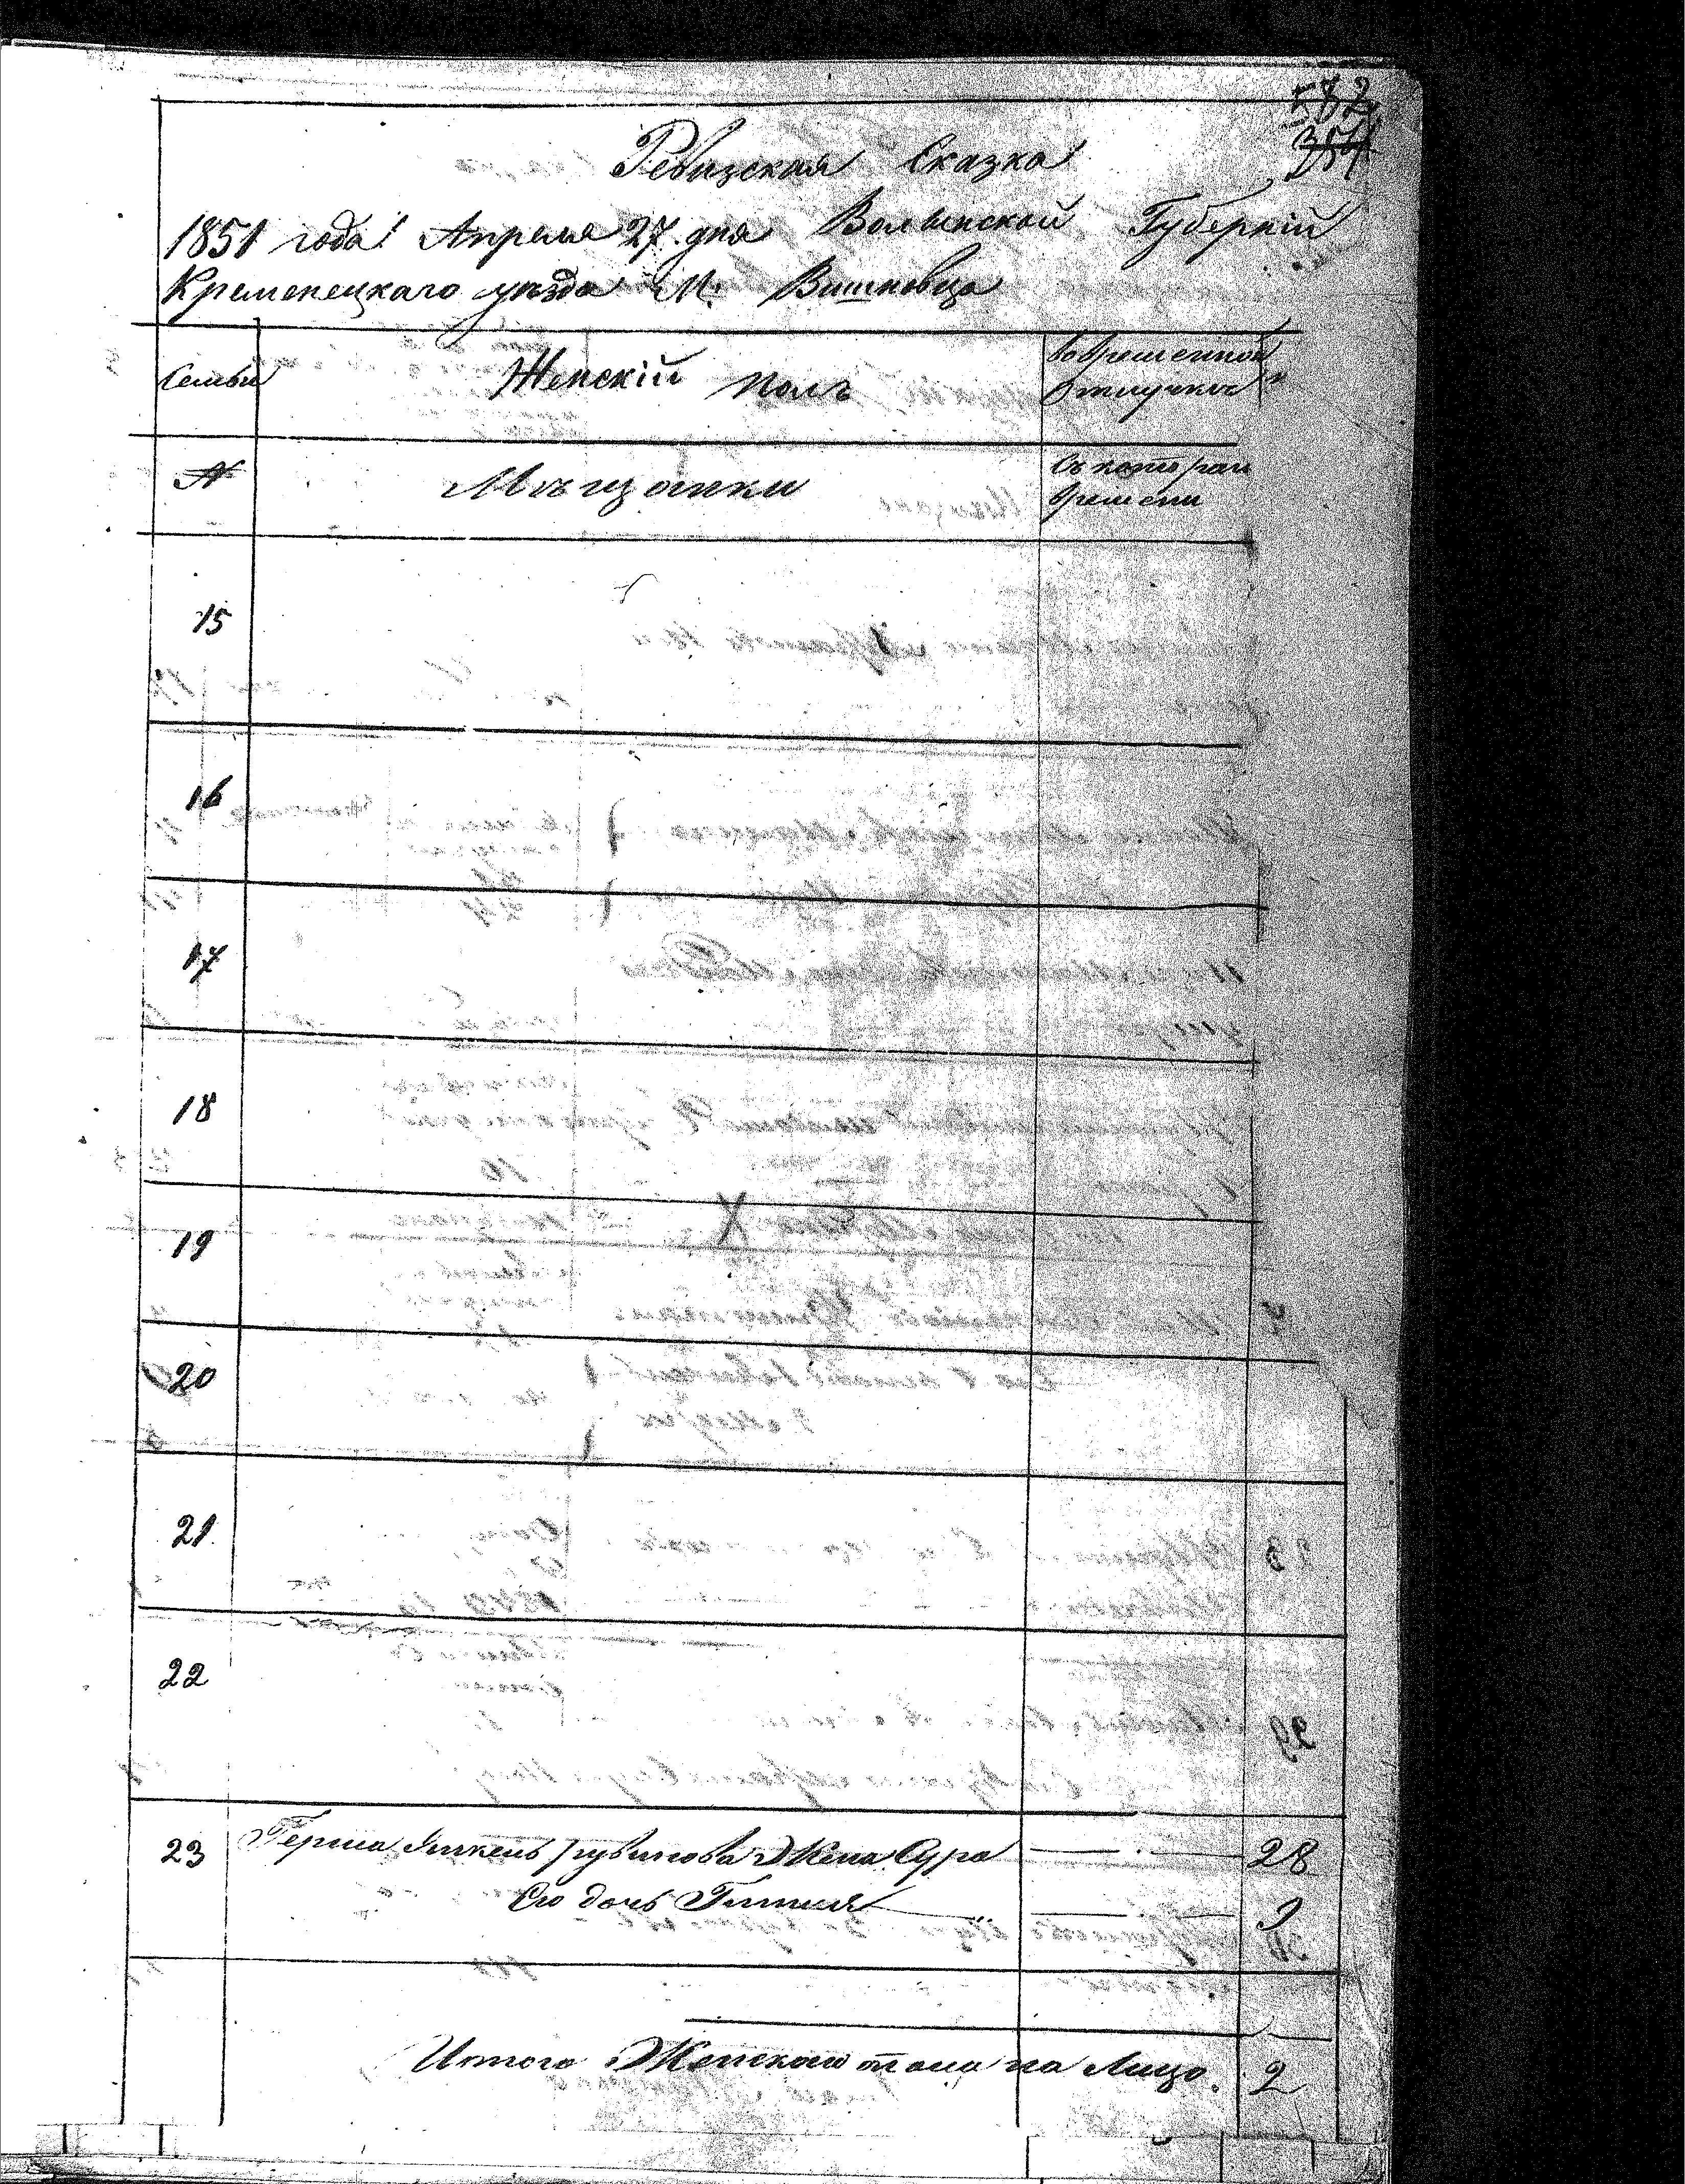 582
354
Ревизская Сказка
1851 года Апреля 27 дня Волынской Губерніи
Кременецкаго уезда М. Вишневца
Семьи Женскій полъ во временной отлучкъ
№ Мъщанки Съ котораго времени
15
16
17
18
19
20
21.
22
23 Герша Рувинова Жена Сура 28
Его дочь Гитля 9
Итого Женскаго пола на Лицо. 2